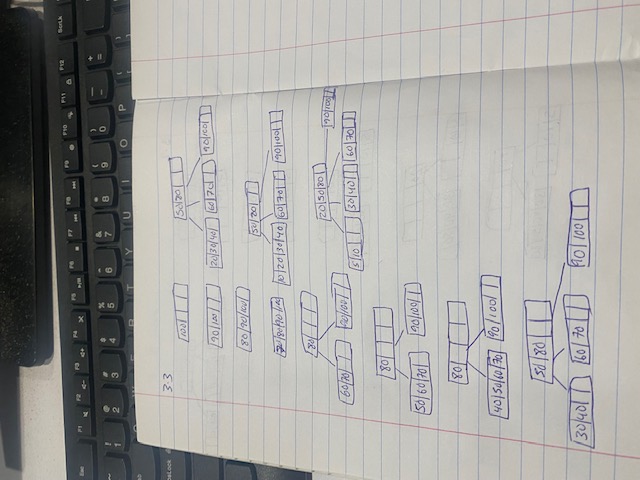 Esc F1 F2 F3 F4 F5 F6 F7 F8 F9 F10 F11 F12 ScrLk
! @ # $ % ^ & * ( )
1 2 3 4 5 6 7 8 9 0 - =
W E R T Y U I O P
3.3
100
90|100
80|90|100
70|80|90|100
80
60|70 90|100
80
50|60|70 90|100
80
40|50|60|70 90|100
50|80
30|40 60|70 90|100
50|80
20|30|40 60|70 90|100
50|80
10|20|30|40 60|70 90|100
20|50|80
5|10 30|40 60|70 90|100